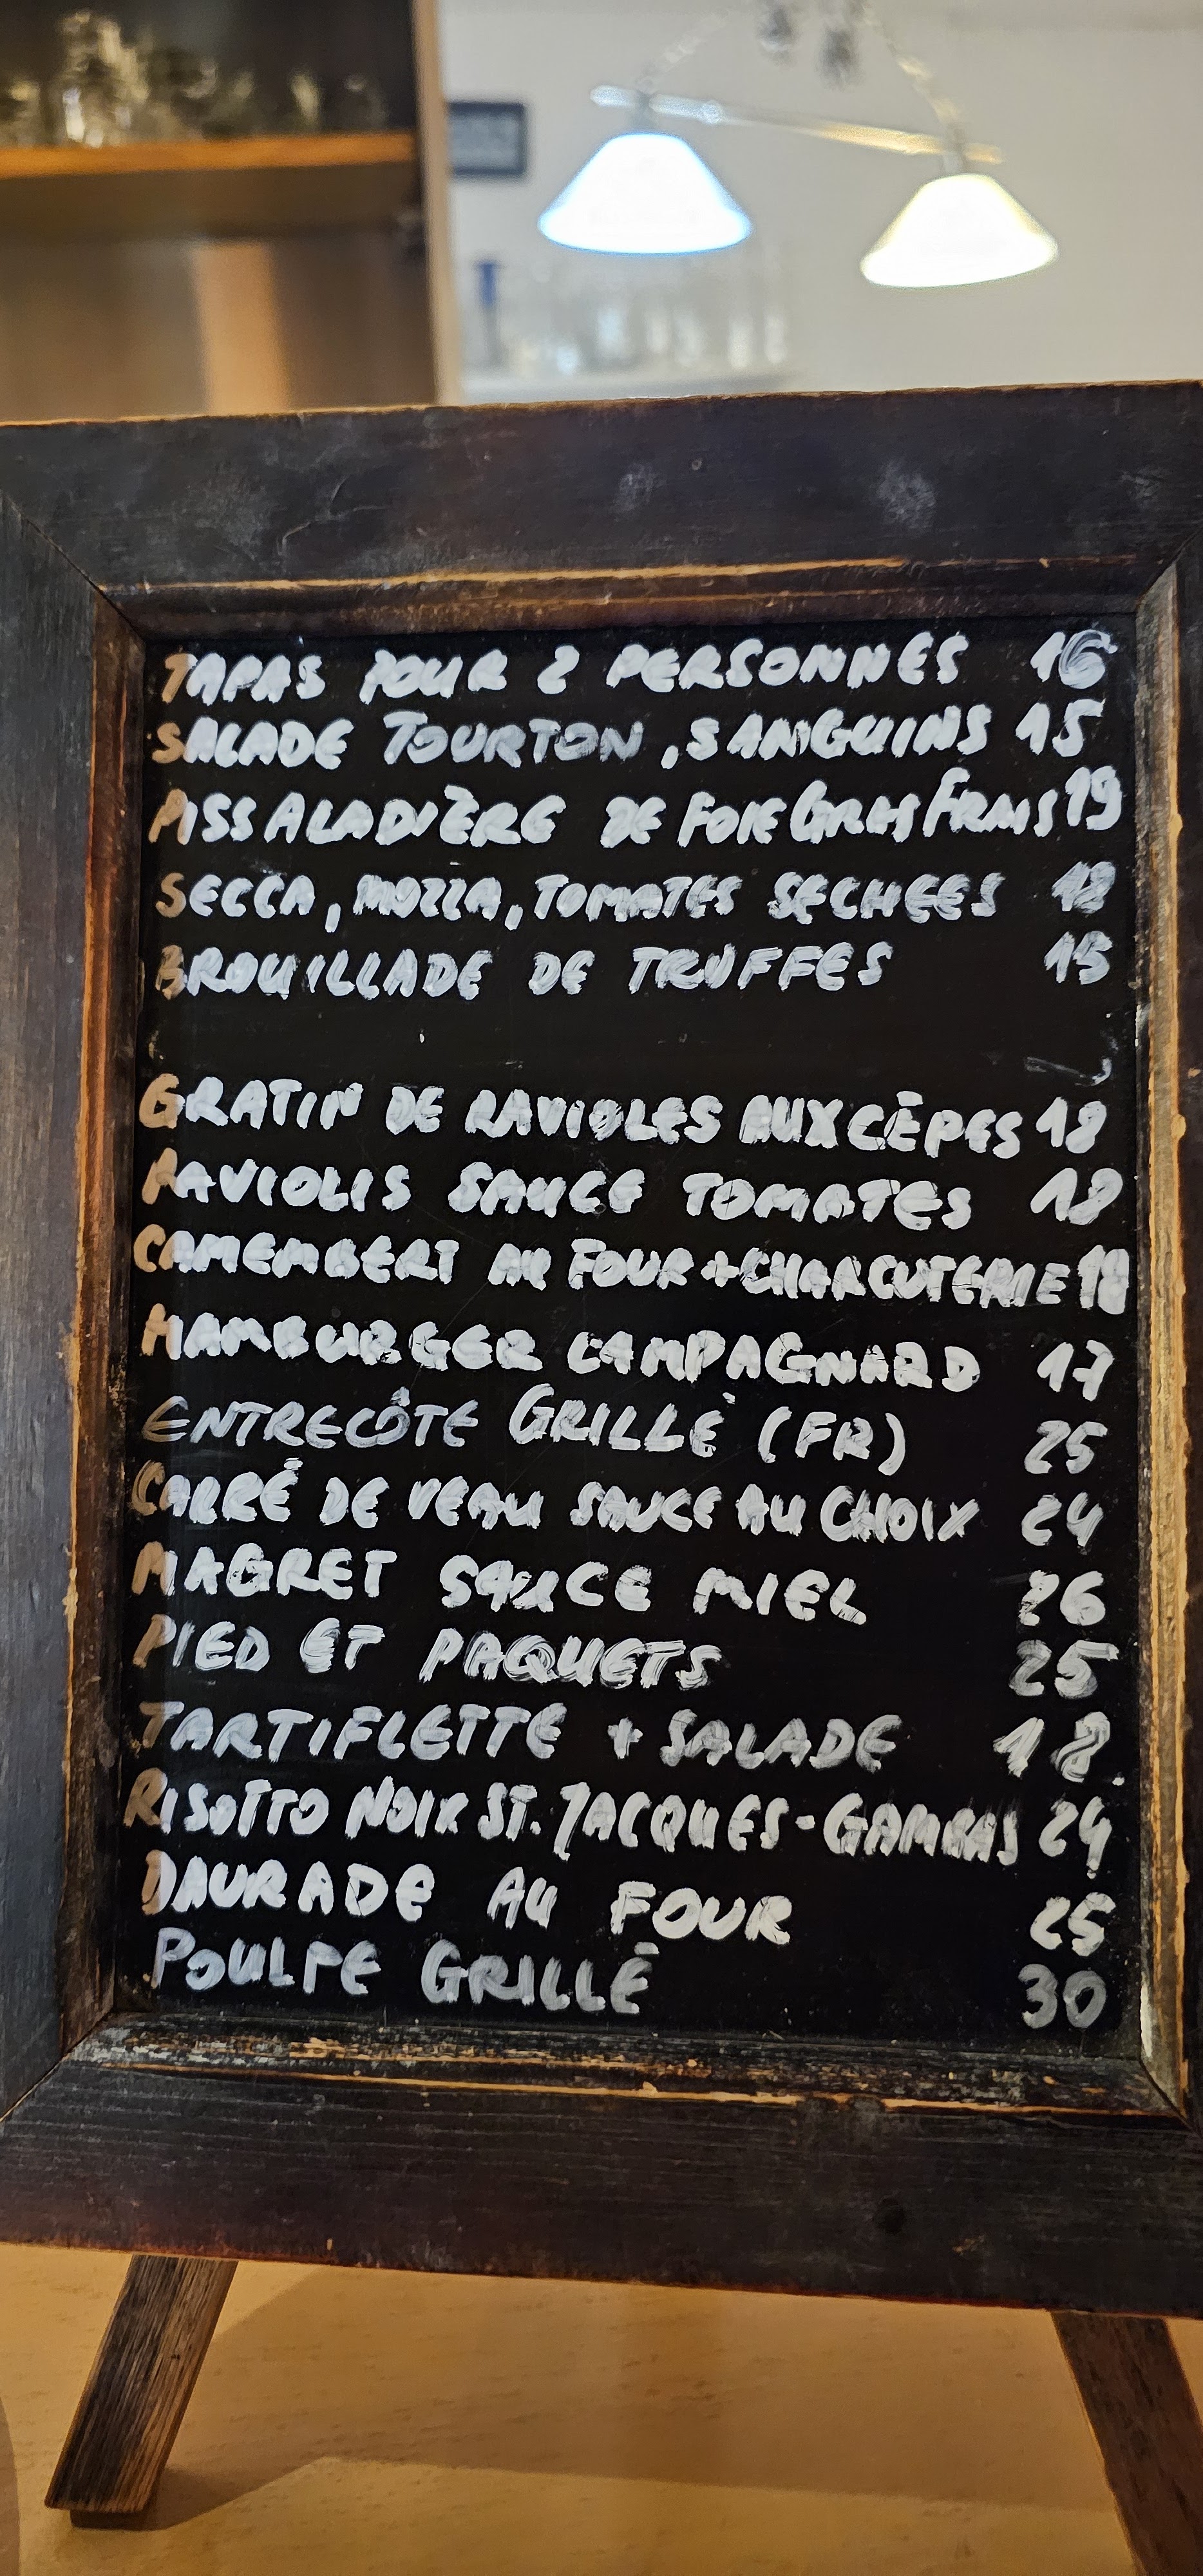 TAPAS POUR 2 PERSONNES 16
SALADE TOURTON, SANGUINS 15
PISSALADIÈRE DE FOIE GRAS FRAIS 19
SECCA, MOZZA, TOMATES SECHEES 18
BROUILLADE DE TRUFFES 15
GRATIN DE RAVIOLES AUX CÈPES 18
RAVIOLIS SAUCE TOMATES 18
CAMEMBERT AU FOUR + CHARCUTERIE 18
HAMBURGER CAMPAGNARD 17
ENTRECÔTE GRILLÉ (FR) 25
CARRÉ DE VEAU SAUCE AU CHOIX 24
MAGRET SAUCE MIEL 26
PIED ET PAQUETS 25
TARTIFLETTE + SALADE 18.
RISOTTO NOIX ST. JACQUES - GAMBAS 24
DAURADE AU FOUR 25
POULPE GRILLÉ 30